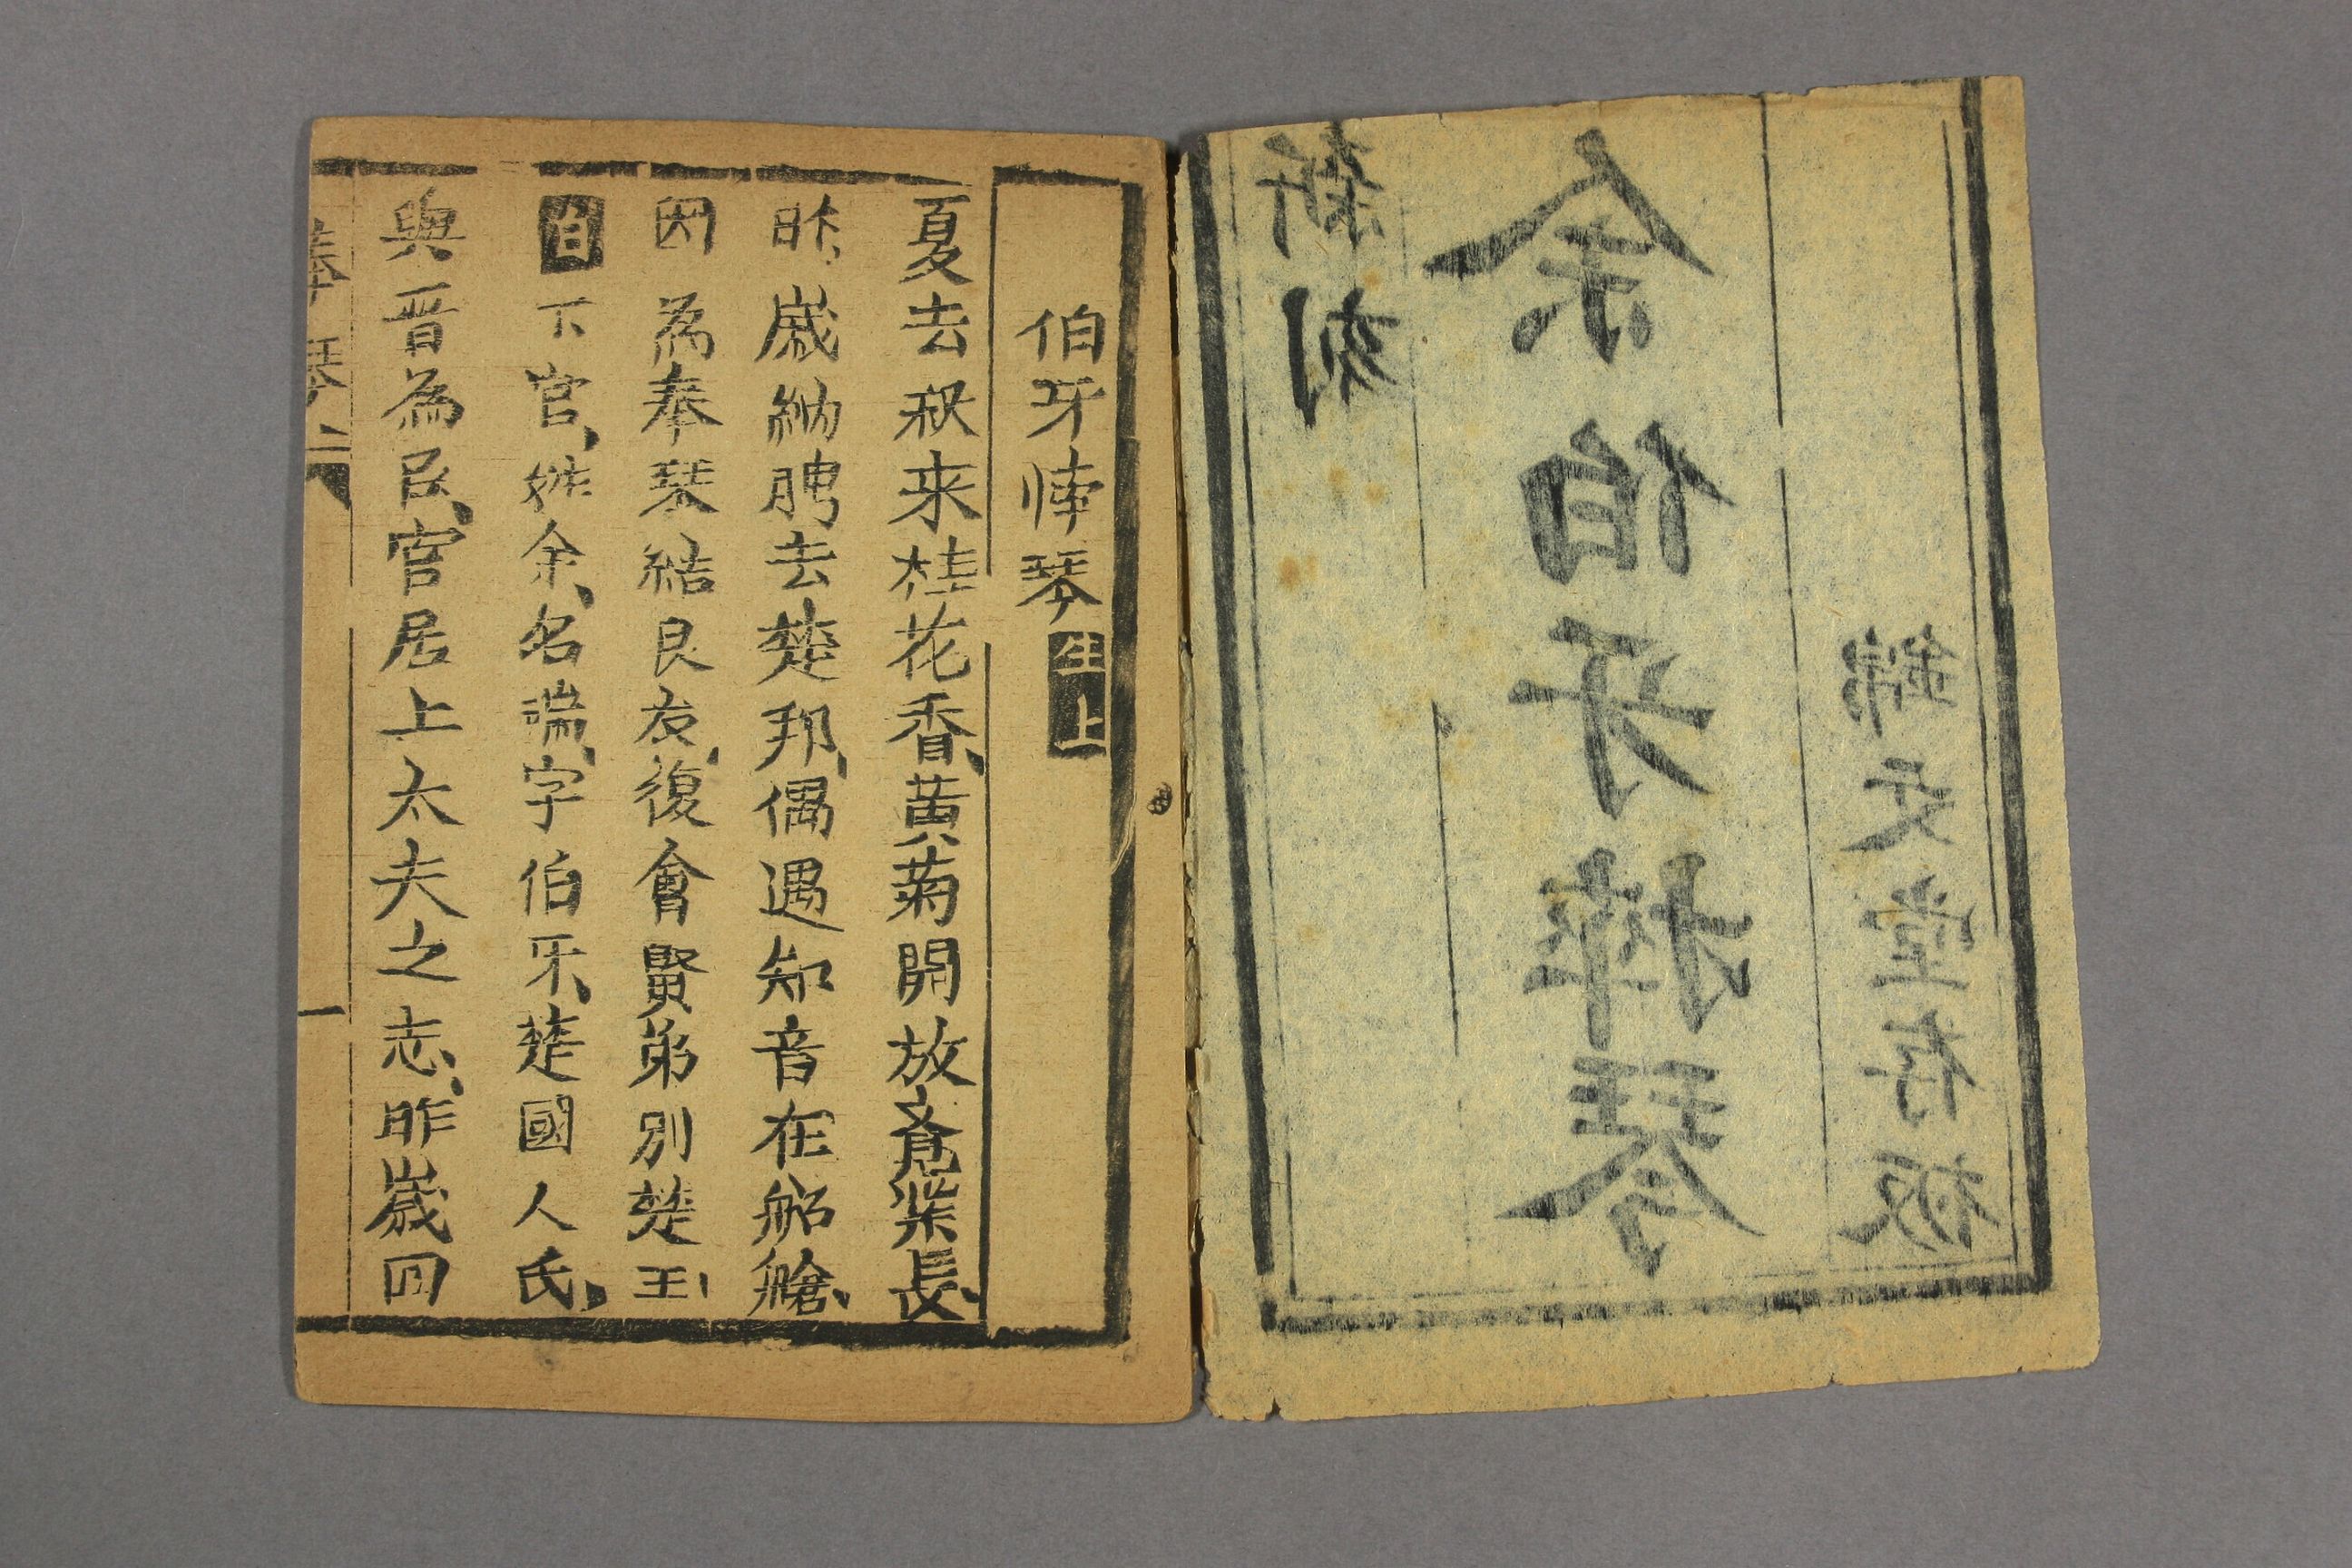 新刻
余伯牙摔琴
錦文堂存板
伯牙捽琴 生上
夏去秋来桂花香、黄菊開放葉長、
昨歲納聘去楚邦、偶遇知音在船艙、
因為奉琴結良友、復會賢弟別楚王、
白下官、姓余、名瑞、字伯牙、楚國人氏、
與晋為臣、官居上太夫之志、昨歲回
琴 一